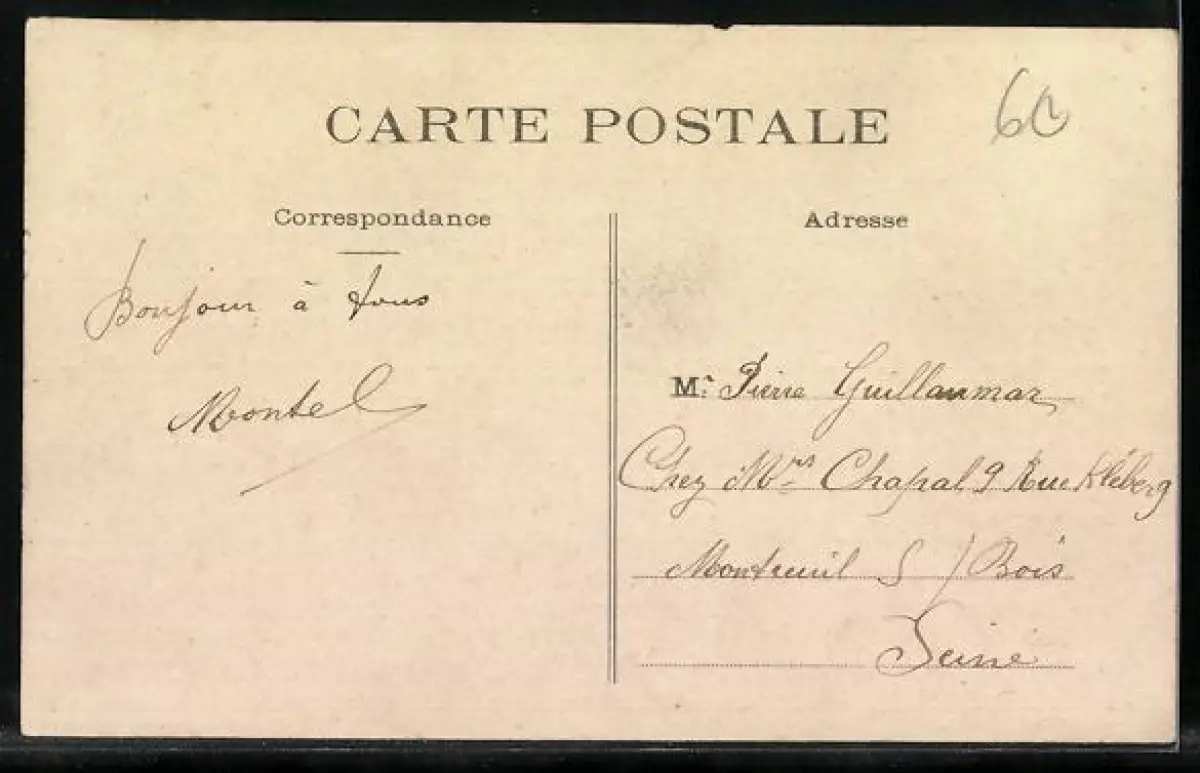 CARTE POSTALE
60
Correspondance
Adresse
Bonjour à tous
Montel
Mr. Pierre Guillaumar
Chez Mrs Chapal 9 Rue Kléberg
Montreuil S/Bois
Seine